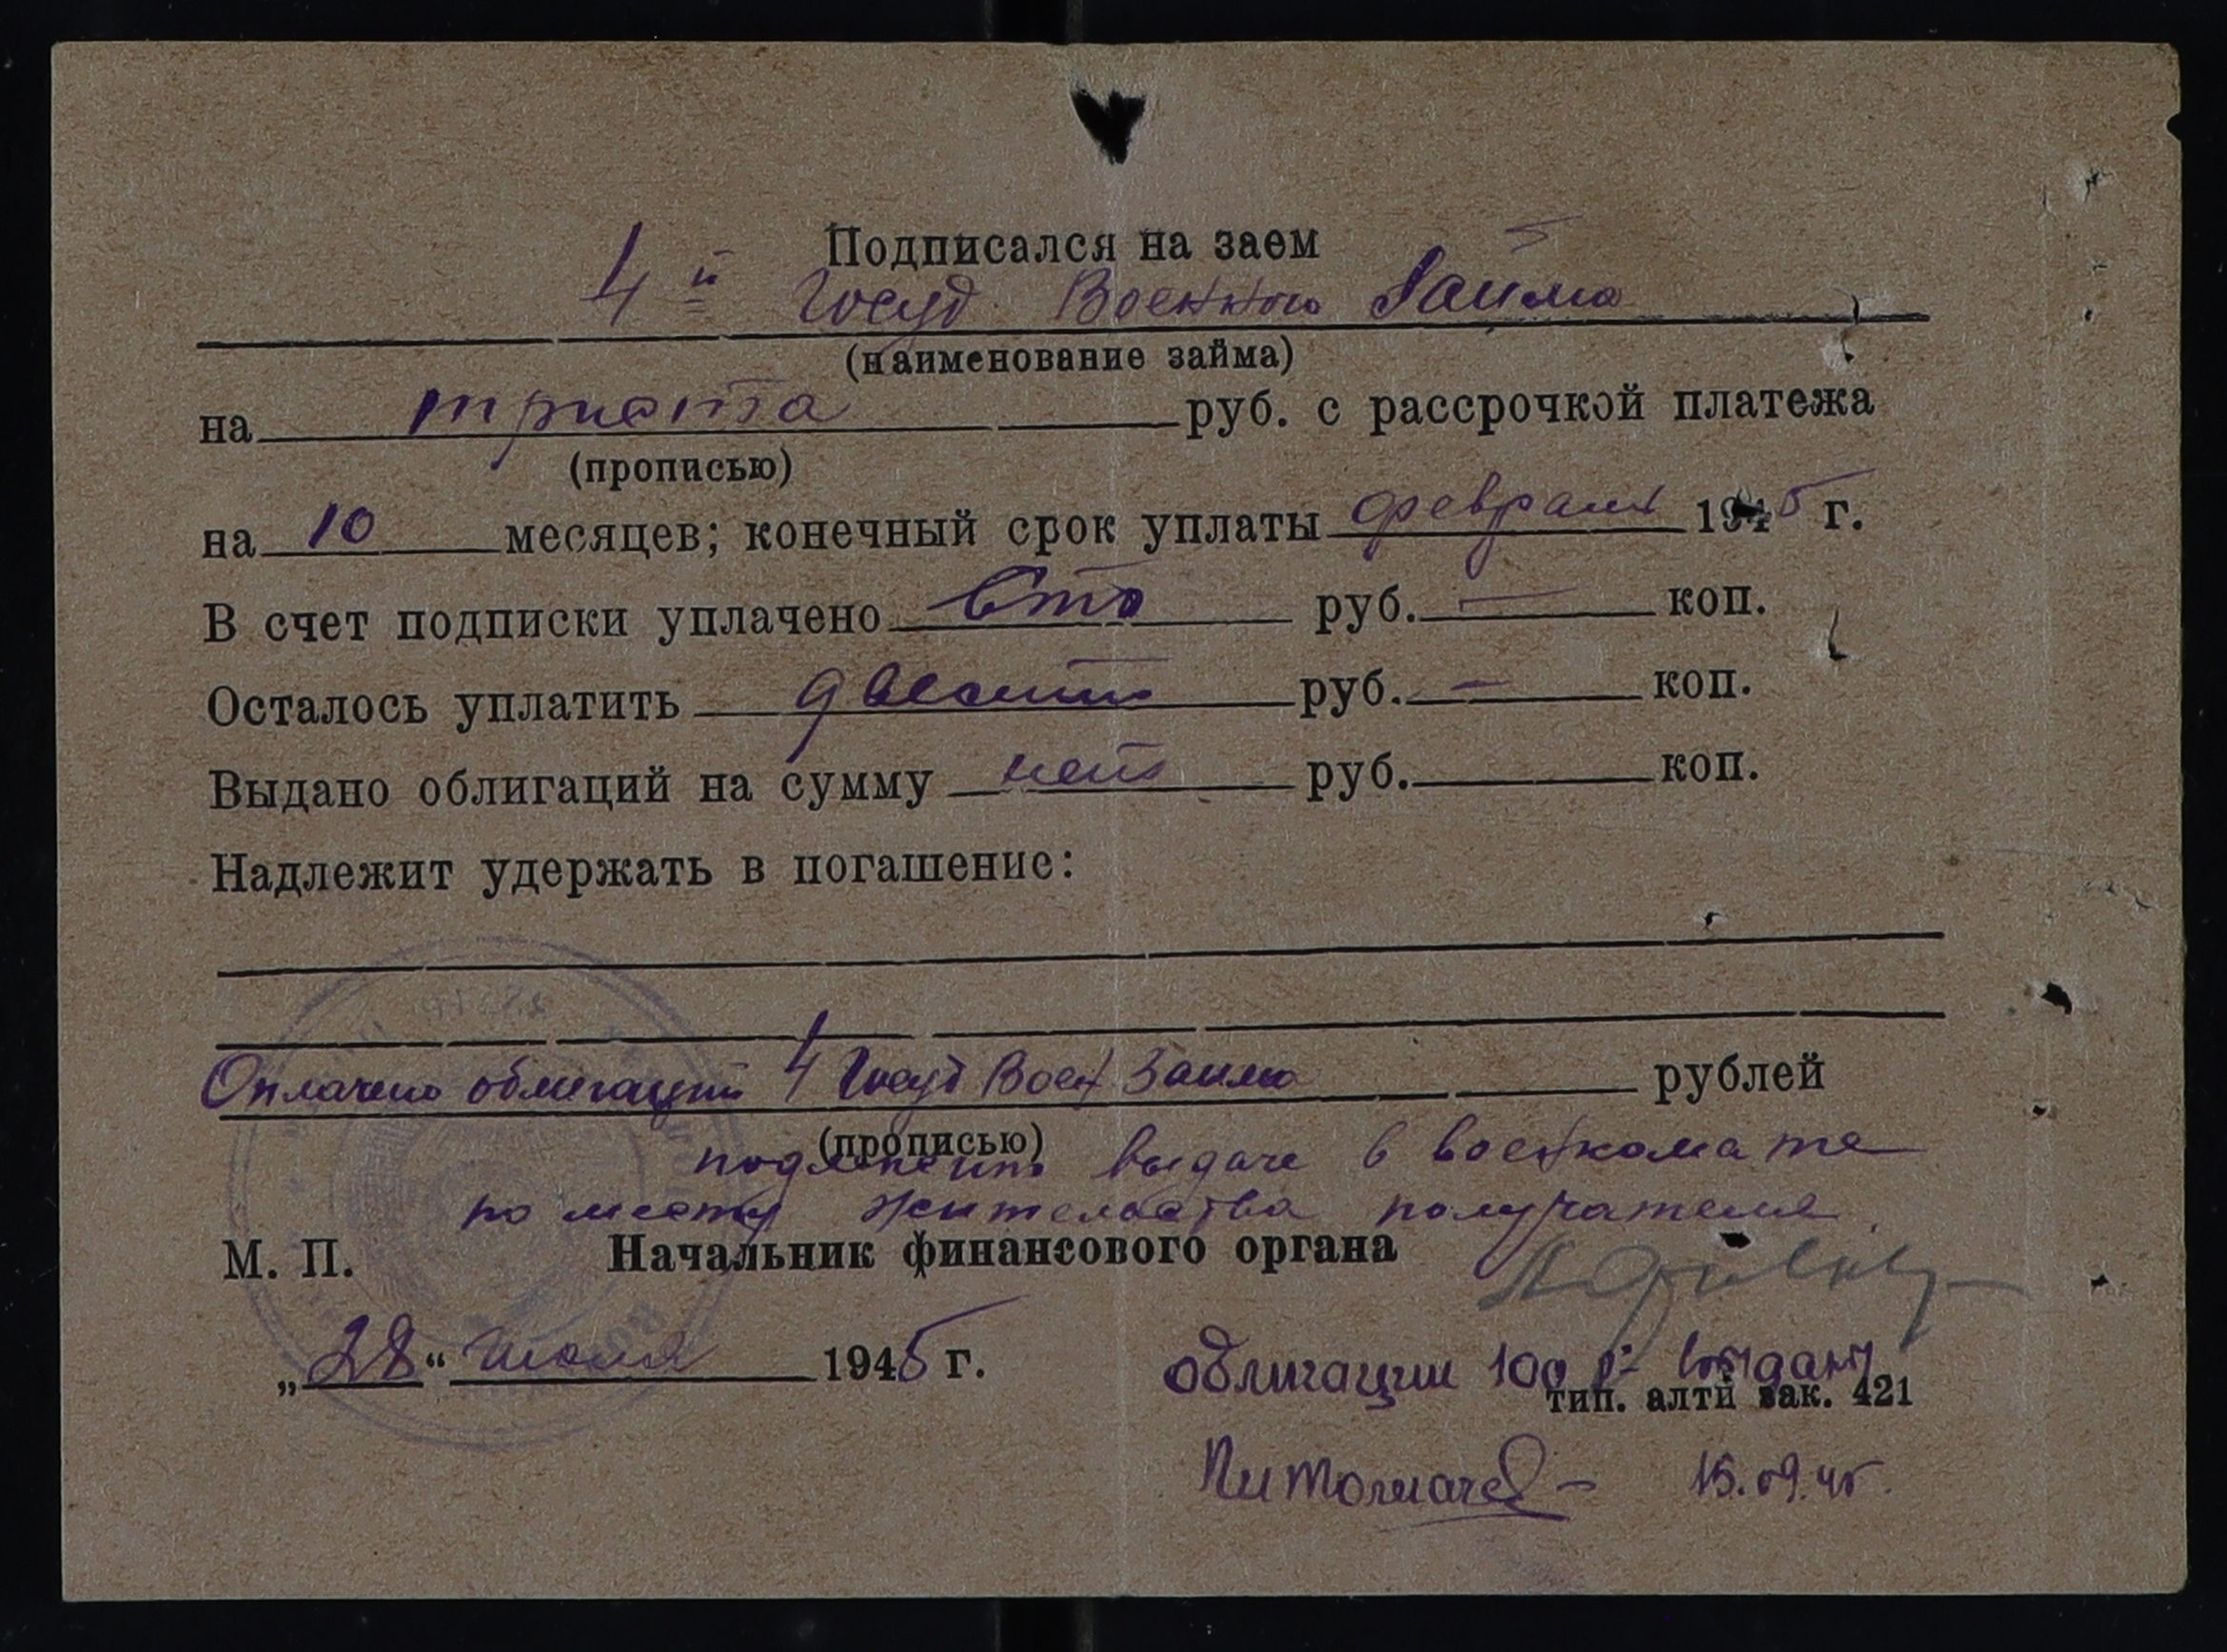 Подписался на заем
4й Госуд. Военного Займа
(наименование займа)
на триста руб. с рассрочкой платежа
(прописью)
на 10 месяцев; конечный срок уплаты февраль 1945 г.
В счет подписки уплачено Сто руб. — коп.
Осталось уплатить двести руб. — коп.
Выдано облигаций на сумму нет руб. коп.
Надлежит удержать в погашение:
Оплачено облигации 4 Госуд Воен Займа рублей
(прописью)
подлежит выдаче в военкомате
по месту жительства получателя.
М. П. Начальник финансового органа
„28“ июля 1945 г.
облигации 100 р- выданы
тип. алти зак. 421
15.09.45.